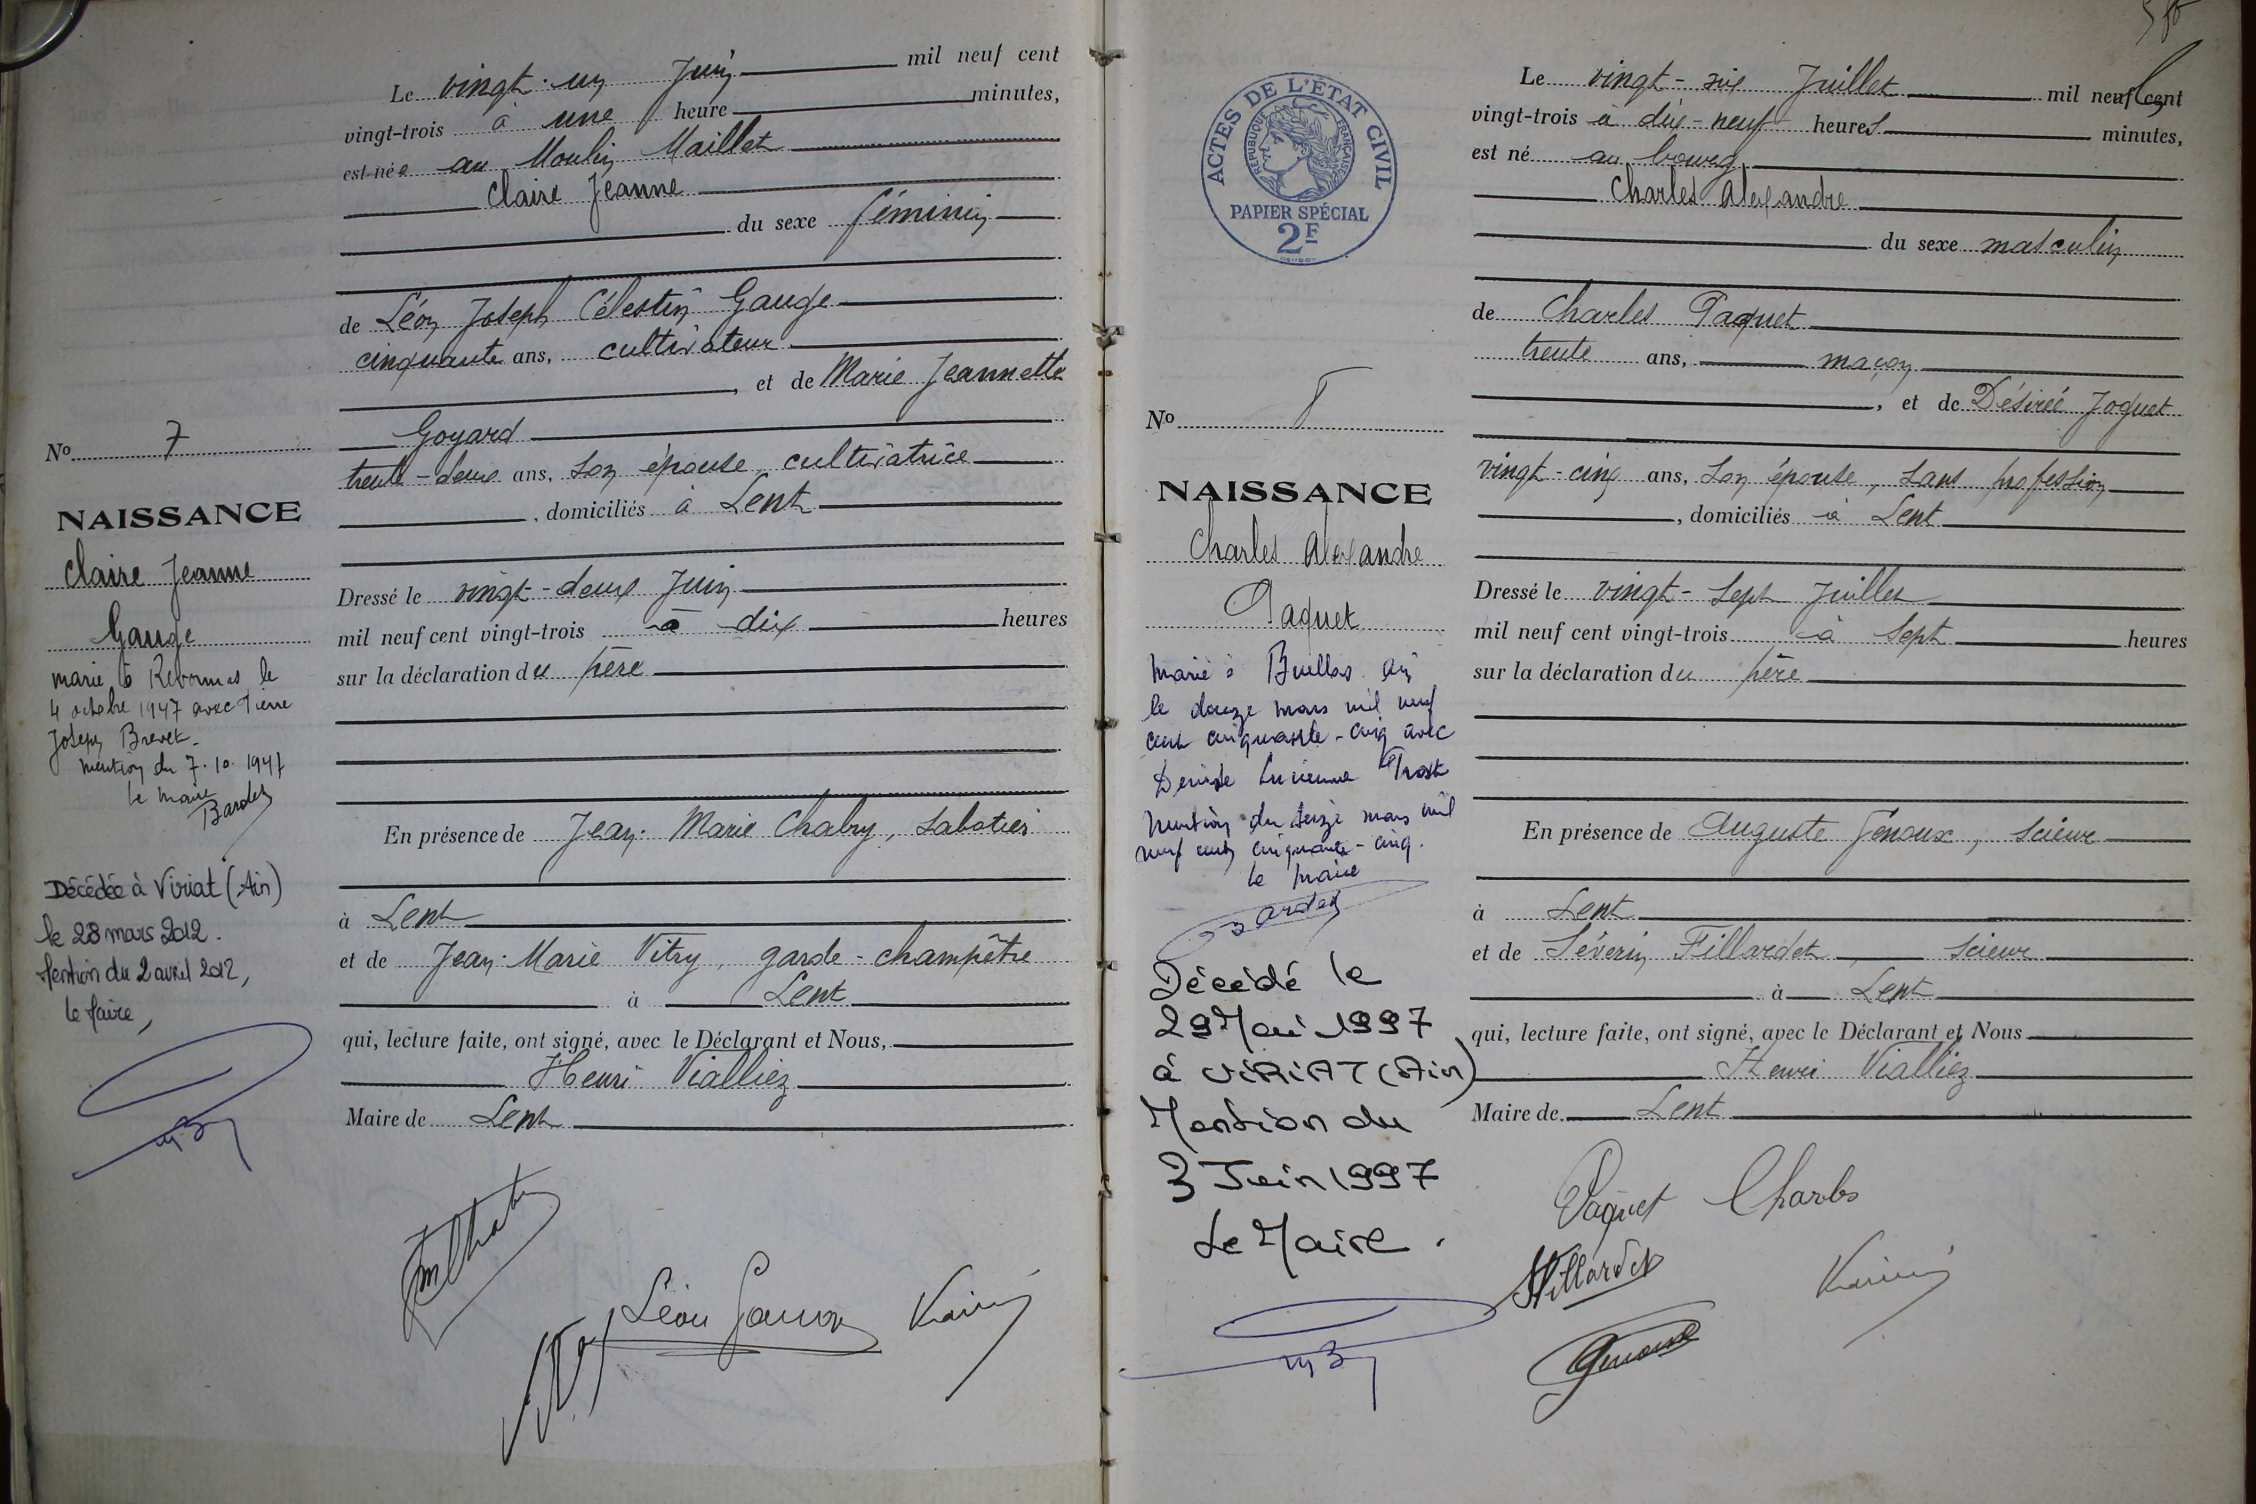 Le vingt-un Juin mil neuf cent
vingt-trois à une heure minutes,
est née au Moulin Maillet
Claire Jeanne
du sexe féminin
de Léon Joseph Célestin Gauge
cinquante ans, cultivateur
, et de Marie Jeannette
Goyard
trente-deux ans, son épouse, cultivatrice
, domiciliés à Lent
Dressé le vingt-deux Juin
mil neuf cent vingt-trois à dix heures
sur la déclaration du père
En présence de Jean-Marie Chabry, sabotier
à Lent
et de Jean-Marie Vitry, garde-champêtre
à Lent
qui, lecture faite, ont signé, avec le Déclarant et Nous,
Henri Vialliez
Maire de Lent
Léon Gauge
No 7
NAISSANCE
Claire Jeanne
Gauge
marié à Revonnas le
4 octobre 1947 avec Pierre
Joseph Brevet.
mention du 7.10.1947
le maire
Décédée à Viriat (Ain)
le 28 mars 2012.
Mention du 2 avril 2012,
le Maire,
ACTES DE L'ÉTAT CIVIL
RÉPUBLIQUE FRANÇAISE
PAPIER SPÉCIAL
2F
Le vingt-six Juillet mil neuf cent
vingt-trois à dix-neuf heures minutes,
est né au bourg
Charles Alexandre
du sexe masculin
de Charles Paquet
trente ans, maçon
, et de Désirée Joguet
vingt-cinq ans, son épouse, sans profession
, domiciliés à Lent
Dressé le vingt-sept Juillet
mil neuf cent vingt-trois à sept heures
sur la déclaration du père
En présence de Auguste Génoux, scieur
à Lent
et de Séverin Fillardet, scieur
à Lent
qui, lecture faite, ont signé, avec le Déclarant et Nous
Henri Vialliez
Maire de Lent
Paquet Charles
Fillardet
Genoux
No 8
NAISSANCE
Charles Alexandre
Paquet
Marié à Buellas Ain
le douze mars mil neuf
cent cinquante-cinq avec
Denise Lucienne
Mention du seize mars mil
neuf cent cinquante-cinq.
le maire
Décédé le
29 Mai 1997
à VIRIAT (Ain)
Mention du
3 Juin 1997
Le Maire.